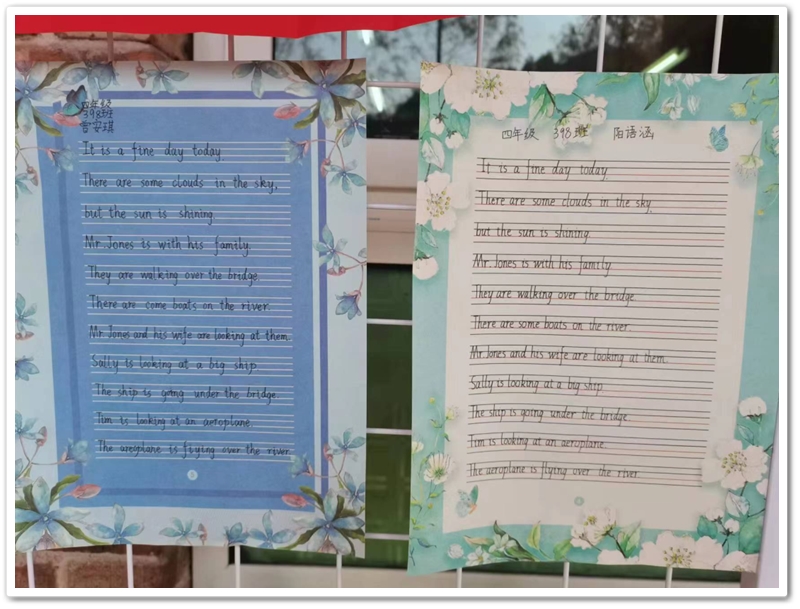 四年级
398班
安琪
It is a fine day today.
There are some clouds in the sky,
but the sun is shining.
Mr. Jones is with his family.
They are walking over the bridge.
There are come boats on the river.
Mr Jones and his wife are looking at them.
Sally is looking at a big ship.
The ship is going under the bridge.
Tim is looking at an aeroplane.
The aeroplane is flying over the river.
四年级 398班 陌语涵
It is a fine day today.
There are some clouds in the sky,
but the sun is shining.
Mr. Jones is with his family.
They are walking over the bridge.
There are some boats on the river.
Mr. Jones and his wife are looking at them.
Sally is looking at a big ship.
The ship is going under the bridge.
Tim is looking at an aeroplane.
The aeroplane is flying over the river.